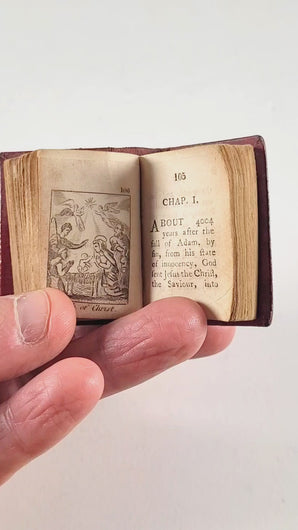 of Christ.
105
CHAP. I.
ABOUT 4004
years after the
fall of Adam, by
ſin, from his ſtate
of innocency, God
ſent Jeſus the Chriſt,
the Saviour, into